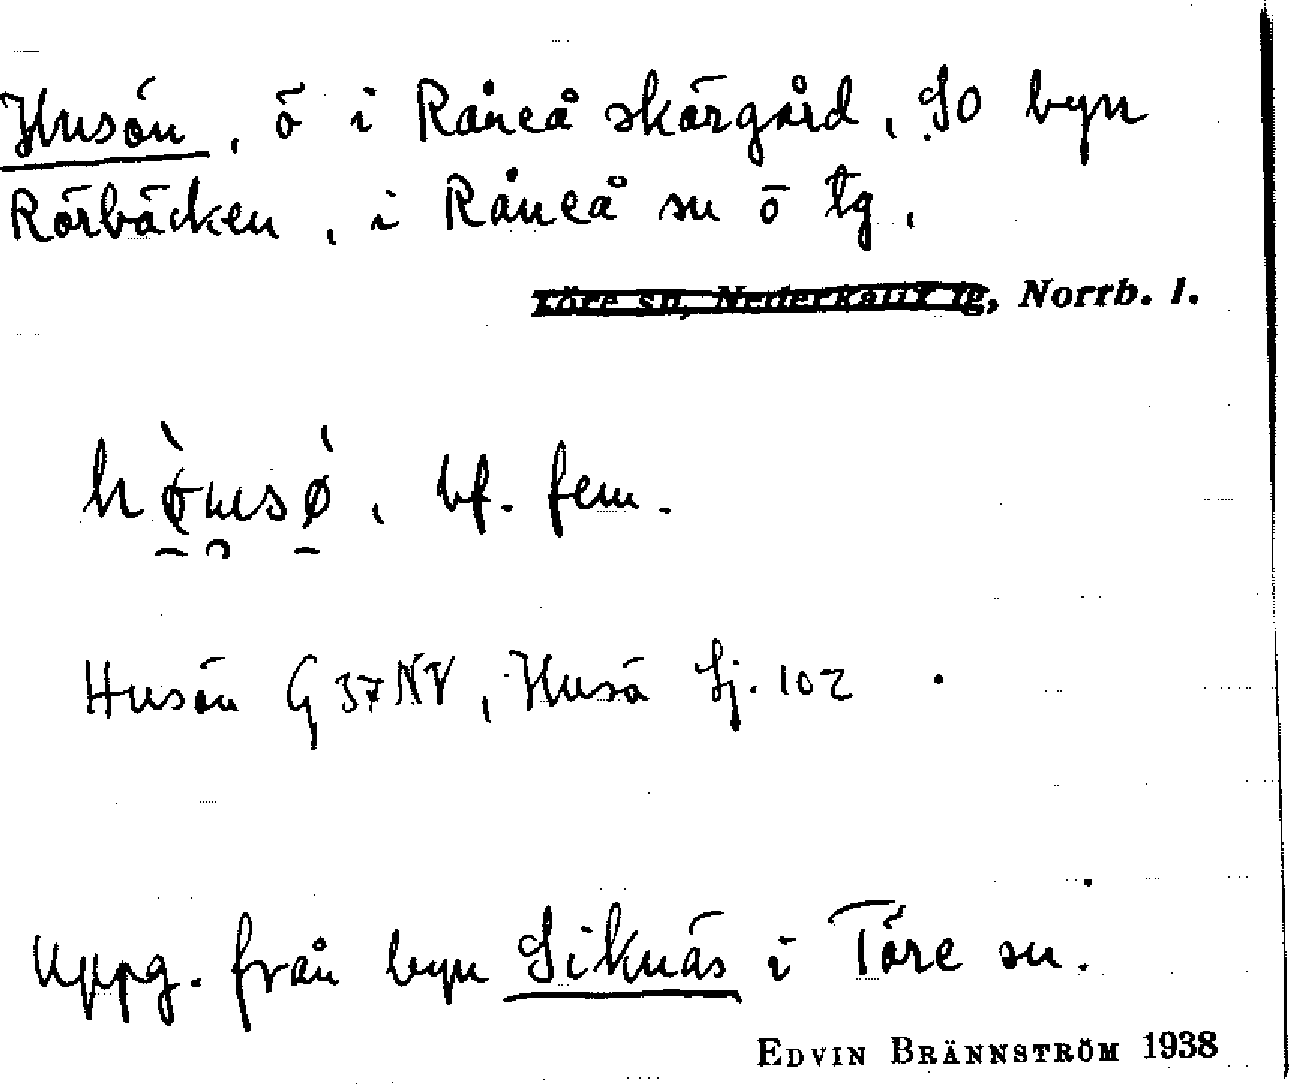 Husön, ö i Råneå skärgård, SO byn
Rörbäcken, i Råneå sn o tg,
Töre sn, Nederkalix tg, Norrb. l.
bf. fem.
Husön G 37 NV, Husö Sj. 102
Uppg. från byn Siknäs i Töre sn.
EDVIN BRÄNNSTRÖM 1938